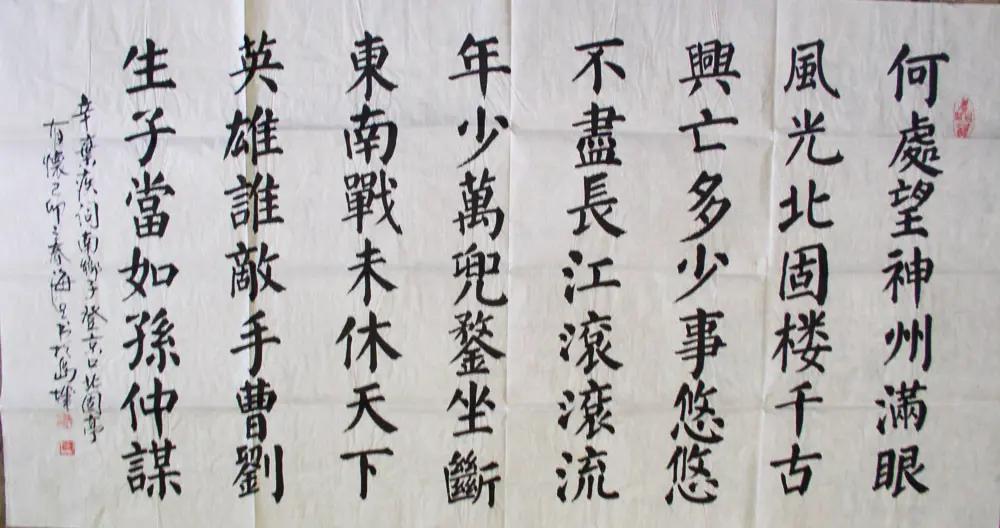 何處望神州滿眼
風光北固楼千古
興亡多少事悠悠
不盡長江滾滾流
年少萬兜鍪坐斷
東南戰未休天下
英雄誰敵手曹劉
生子當如孫仲謀
辛棄疾词南鄉子登京口北固亭
有懷己卯之春海